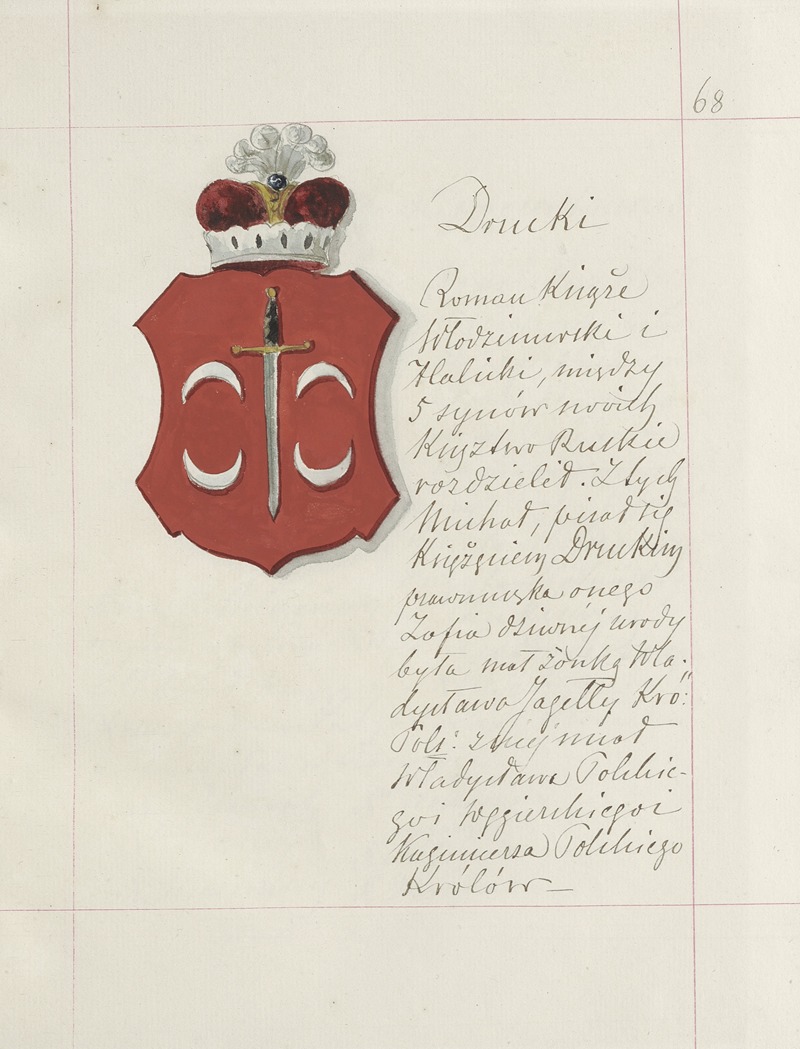 68
Drucki
Roman Kiąże
Włodzimirski i
Halicki, między
5 synów swoich
Księztwo Ruskie
rozdzielił. Z tych
Michał, pisał się
Książęciem Druckim
prawnuczka onego
Zofia dziwnéj urody
była małżonką Wła-
dysława Jagełły Kró:
Pols: z niéj miał
Władysława Polskie-
go i Węgierskiego i
Kazimierza Polskiego
Królów —